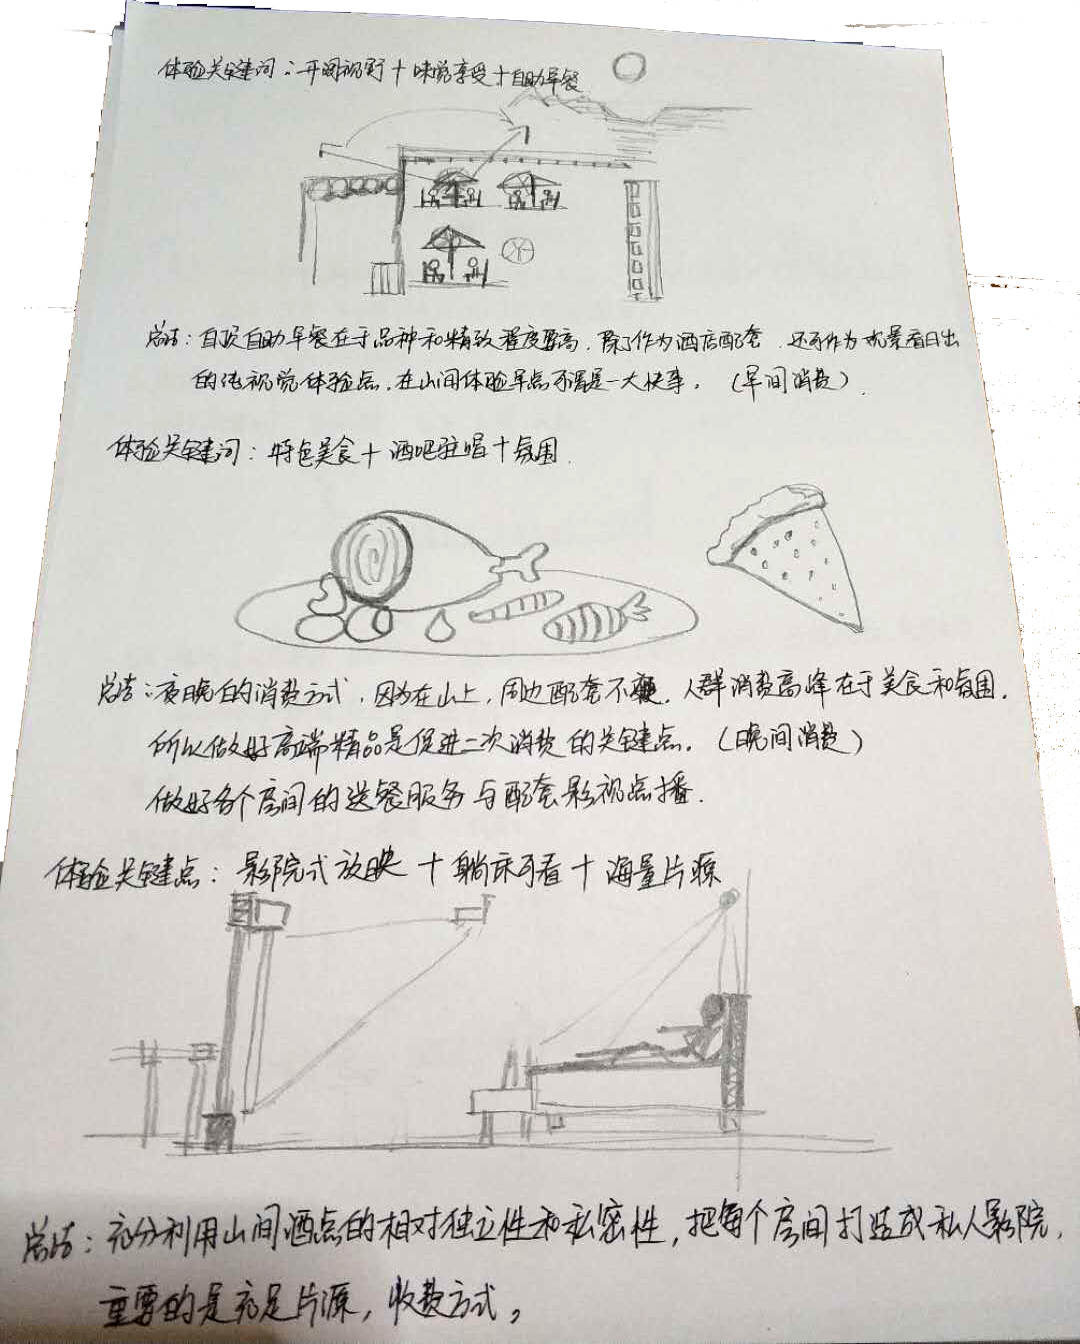 体验关键词：开阔视野＋味觉享受＋自助早餐
总结：自顶自助早餐在于品种和精致程度要高，除了作为酒店配套，还可作为观景看日出
的纯视觉体验点，在山间体验早点不得是一大快事。（早间消费）
体验关键词：特色美食＋酒吧驻唱＋氛围
总结：夜晚的消费方式，因为在山上，周边配套不便，人群消费高峰在于美食和氛围，
所以做好高端精品是促进二次消费的关键点。（晚间消费）
做好各个房间的送餐服务与配套影视点播.
体验关键点：影院式放映＋躺床可看＋海量片源
总结：充分利用山间酒点的相对独立性和私密性，把每个房间打造成私人影院，
重要的是充足片源，收费方式。